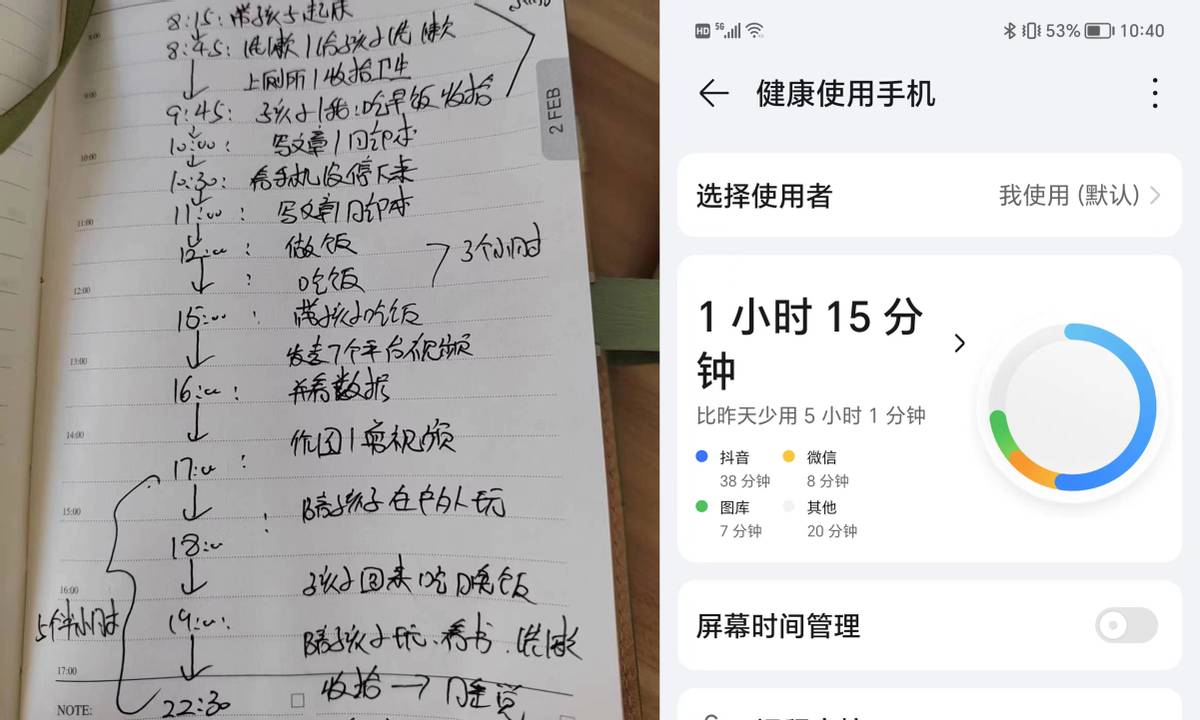 8:15: 带孩子起床
8:00
8:45: 洗漱|给孩子洗漱
上厕所|收拾卫生
9:00
9:45: 孩子|我:吃早饭收拾
10:00: 写文章|
10:00
10:30: 看手机没停下来
11:00: 写文章|
11:00
12:00: 做饭
3个小时
: 吃饭
12:00
15:00: 带孩子吃饭
发表7个平台视频
13:00
16:00: 并看数据
作图|剪视频
14:00
17:00:
: 陪孩子在户外玩
15:00
18:00
孩子回来吃晚饭
16:00
5个半小时
19:00:
陪孩子玩、看书、洗漱
17:00
收拾→睡觉
22:30
NOTE:
2 FEB
HD 5G
53% 10:40
健康使用手机
选择使用者 我使用 (默认)
1 小时 15 分
钟
比昨天少用 5 小时 1 分钟
抖音 微信
38 分钟 8 分钟
图库 其他
7 分钟 20 分钟
屏幕时间管理